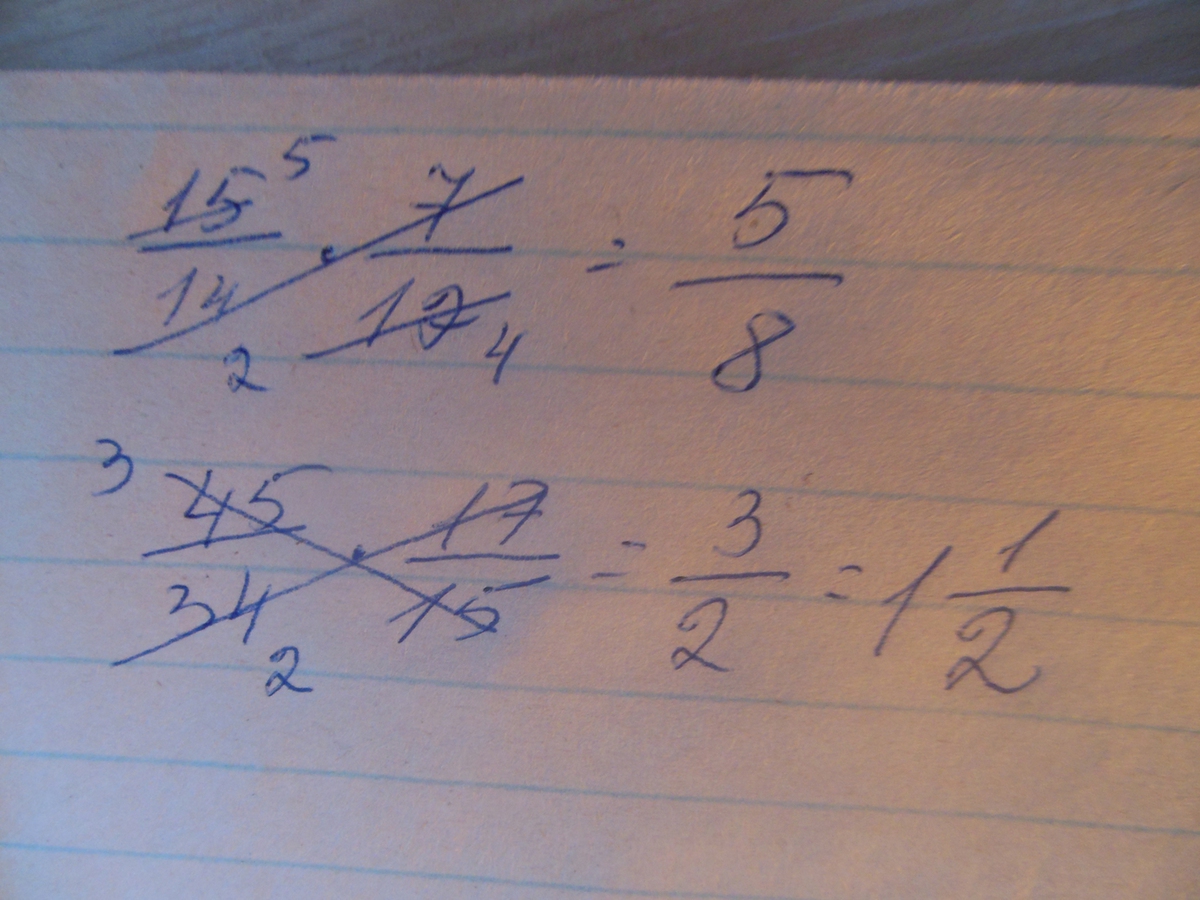 15/14 5 2 · 7/12 4 = 5/8
3 45/34 2 · 17/15 = 3/2 = 1 1/2